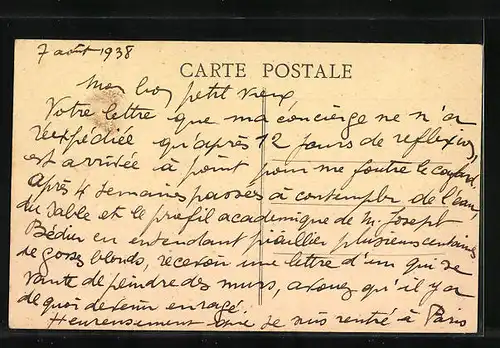 7 août 1938
CARTE POSTALE
Mon bon petit vieux
Votre lettre que ma concierge ne m'a
réexpédiée qu'après 12 jours de reflexion,
est arrivée à point pour me foutre le cafard,
Après 4 semaines passées à contempler de l'eau,
du sable et le profil académique de M. Joseph
Bédier en entendant piailler plusieurs centaines
de gosses blonds, recevoir une lettre d'un qui se
vante de peindre des murs, avouez qu'il y a
de quoi devenir enragé.
Heureusement que je suis rentré à Paris